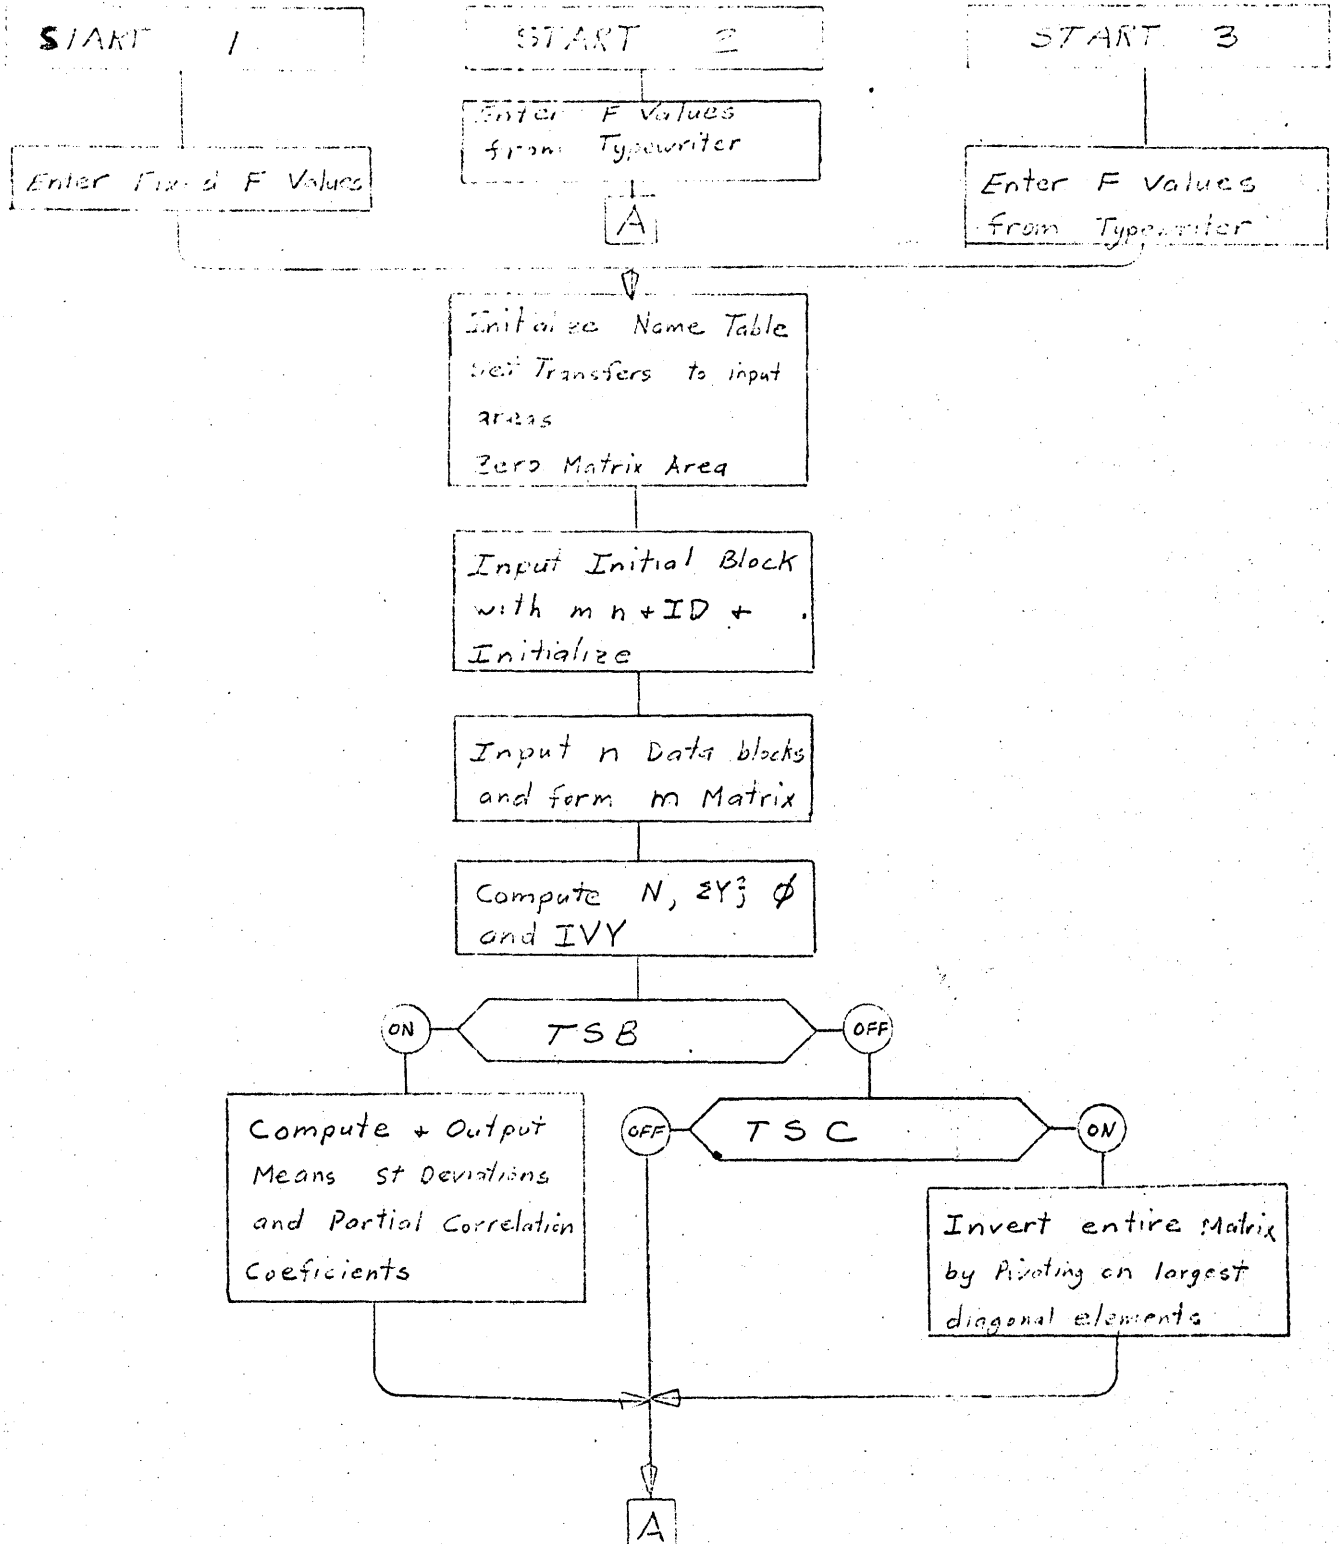 START 1
START 2
START 3
Enter F Values
from Typewriter
Enter Fixed F Values
A
Enter F Values
from Typewriter
Initialize Name Table
Set Transfers to input
areas
Zero Matrix Area
Input Initial Block
with m n + ID +
Initialize
Input n Data blocks
and form m Matrix
Compute N, ΣY²j ϕ
and IVY
ON
TSB
OFF
Compute + Output
Means St Deviations
and Partial Correlation
Coeficients
OFF
TSC
ON
Invert entire Matrix
by Pivoting on largest
diagonal elements
A